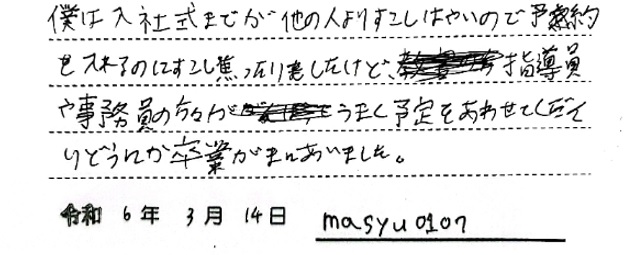 僕は入社式までが他の人よりすこしはやいので予約
を入れるのにすこし焦ったりもしたけど、指導員
や事務員の方々がうまく予定をあわせてくださ
りどうにか卒業がまにあいました。
令和 6年 3月 14日 masyu0107